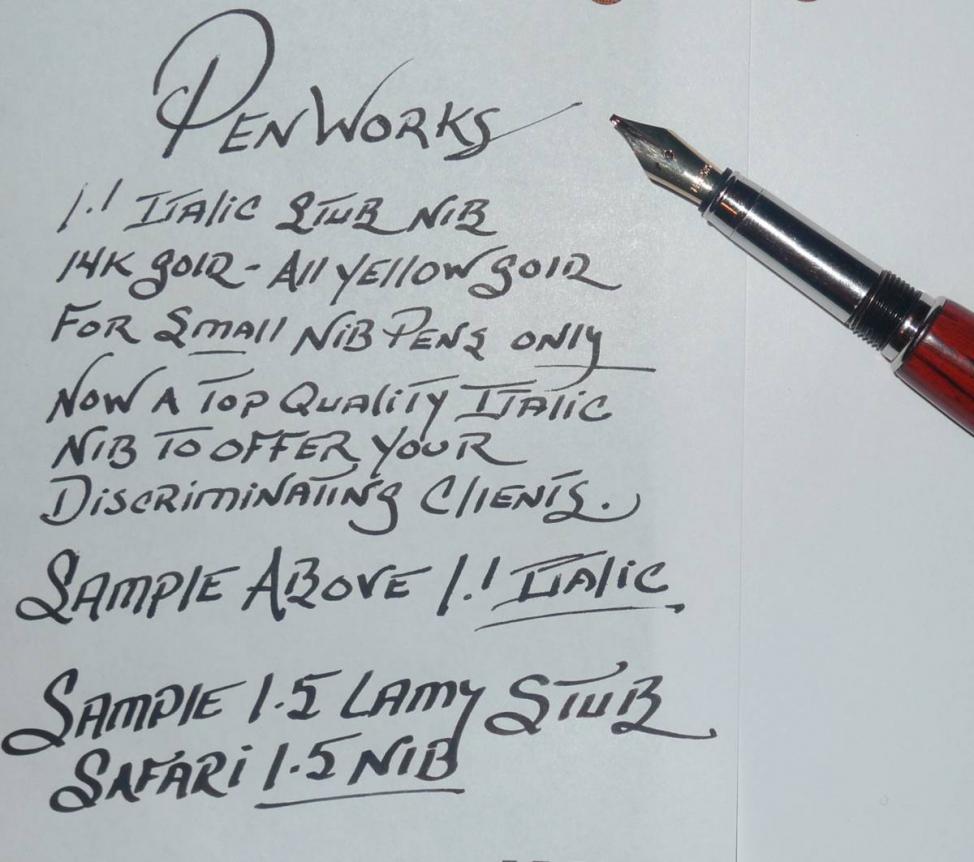 PenWorks
1.1 Italic Stub Nib
14K Gold - All Yellow Gold
For Small Nib Pens only
Now A Top Quality Italic
Nib To Offer Your
Discriminating Clients.
Sample Above 1.1 Italic
Sample 1.5 Lamy Stub
Safari 1.5 Nib